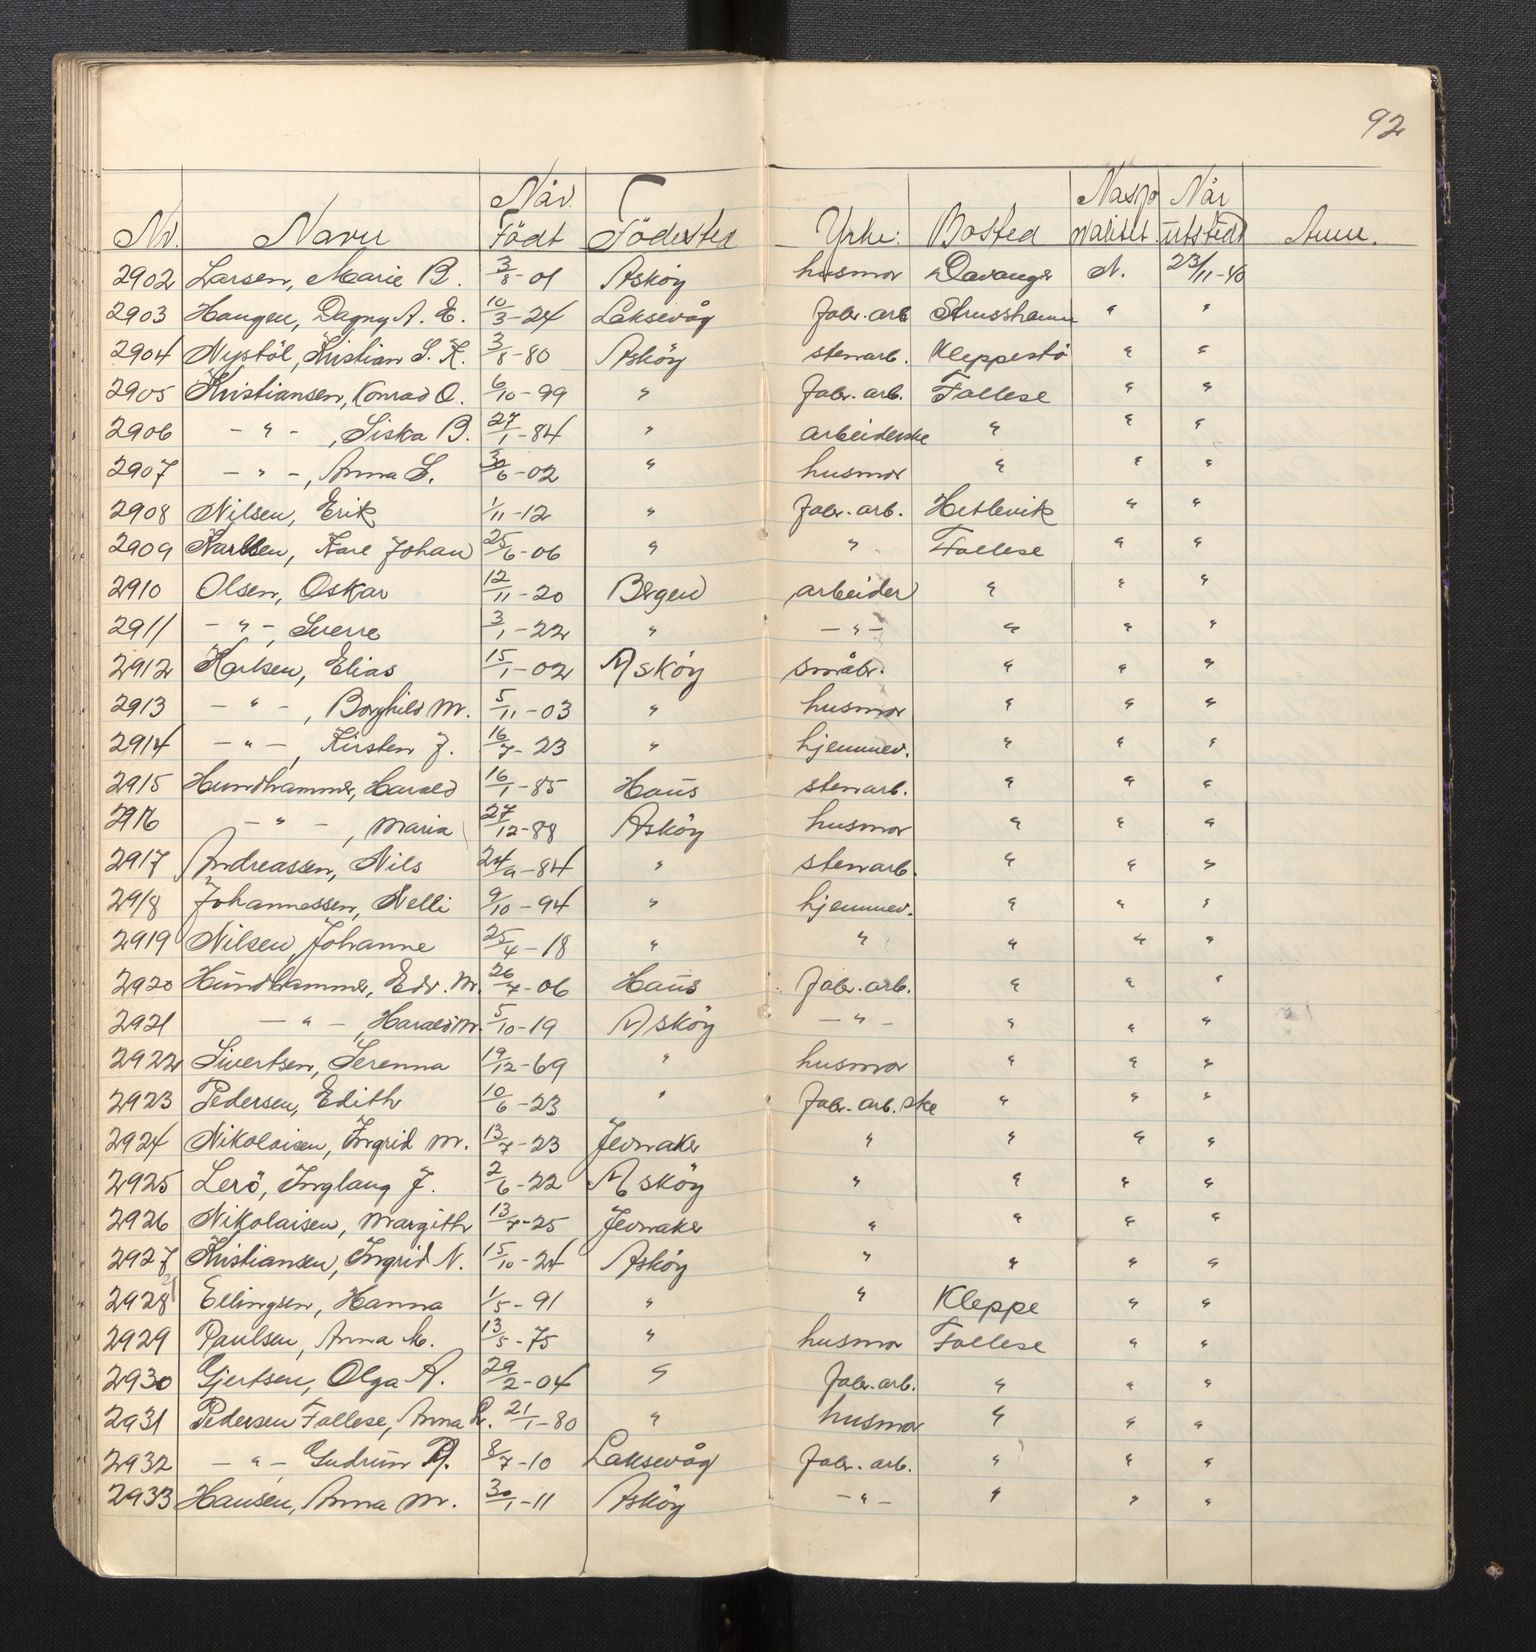 92
Nr. Navn Når Födt Födested Yrke: Bosted Nasjonalitet Når utstedt Anm.
2902 Larsen, Marie B. 3/8-01 Asköy husmor Davanger N. 23/11-40
2903 Haugen, Dagny A. E. 10/3-24 Laksevåg fabr. arb Strusshamn " "
2904 Nystöl, Kristian S. K. 3/8-80 Asköy stenarb. Kleppestö " "
2905 Kristiansen, Konrad O. 6/10-99 " fabr. arb. Follese " "
2906 - " - , Siska B. 27/1-84 " arbeiderske " " "
2907 - " - , Anna S. 30/6-02 " husmor " " "
2908 Nilsen, Erik 1/11-12 " fabr. arb. Hetlevik " "
2909 Karlsen, Karl Johan 25/6-06 " " Follese " "
2910 Olsen, Oskar 12/11-20 Bergen arbeider " " "
2911 - " - , Sverre 3/1-22 " - " - " " "
2912 Karlsen, Elias 15/1-02 Asköy småbr. " " "
2913 - " - , Borghild M. 5/11-03 " husmor " " "
2914 - " - , Kirsten J. 16/7-23 " hjemmev. " " "
2915 Hundhammer, Harald 16/1-85 Haus stenarb. " " "
2916 - " - , Maria 27/12-88 Asköy husmor " " "
2917 Andreassen, Nils 24/9-84 " stenarb. " " "
2918 Johannessen, Nelli 9/10-94 " hjemmev. " " "
2919 Nilsen, Johanne 25/4-18 " " " " "
2920 Hundhammer, Edv. M. 26/7-06 Haus fabr. arb. " " "
2921 - " - , Harald M. 5/10-19 Asköy - " - " " "
2922 Sivertsen, Serenna 19/12-69 " husmor " " "
2923 Pedersen, Edith 10/6-23 " fabr. arb. ske " " "
2924 Nikolaisen, Ingrid M. 13/7-23 Jevnaker " " " "
2925 Lerö, Inglaug J. 2/6-22 Asköy " " " "
2926 Nikolaisen, Margith 13/7-25 Jevnaker " " " "
2927 Kristiansen, Ingrid N. 15/10-24 Asköy " " " "
2928 Ellingsen, Hanna 1/5-91 " " Kleppe " "
2929 Paulsen, Anna M. 13/5-75 " husmor Follese " "
2930 Gjertsen, Olga A. 29/2-04 " fabr. arb. " " "
2931 Pedersen Follese, Anna R. 21/1-80 " husmor " " "
2932 - " - Gudrun R. 8/7-10 Laksevåg fabr. arb. " " "
2933 Hansen, Anna M. 30/1-11 Asköy - " - " " "